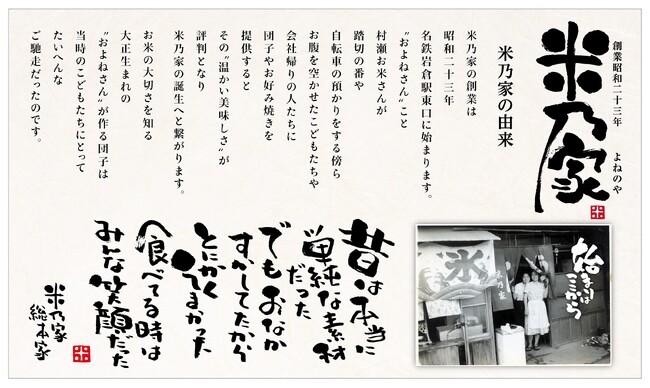 創業昭和二十三年　よねのや
米乃家
米乃家の由来
米乃家の創業は
昭和二十三年
名鉄岩倉駅東口に始まります。
“およねさん”こと
村瀬お米さんが
踏切の番や
自転車の預かりをする傍ら
お腹を空かせたこどもたちや
会社帰りの人たちに
団子やお好み焼きを
提供すると
その“温かい美味しさ”が
評判となり
米乃家の誕生へと繋がります。
お米の大切さを知る
大正生まれの
“およねさん”が作る団子は
当時のこどもたちにとって
たいへんな
ご馳走だったのです。
始まりはここから
氷
米乃家
昔は本当に
単純な素材
だった
でもおなか
すかしてたから
とにかく
うまかった
食べてる時は
みんな笑顔だった
米乃家
総本家
米